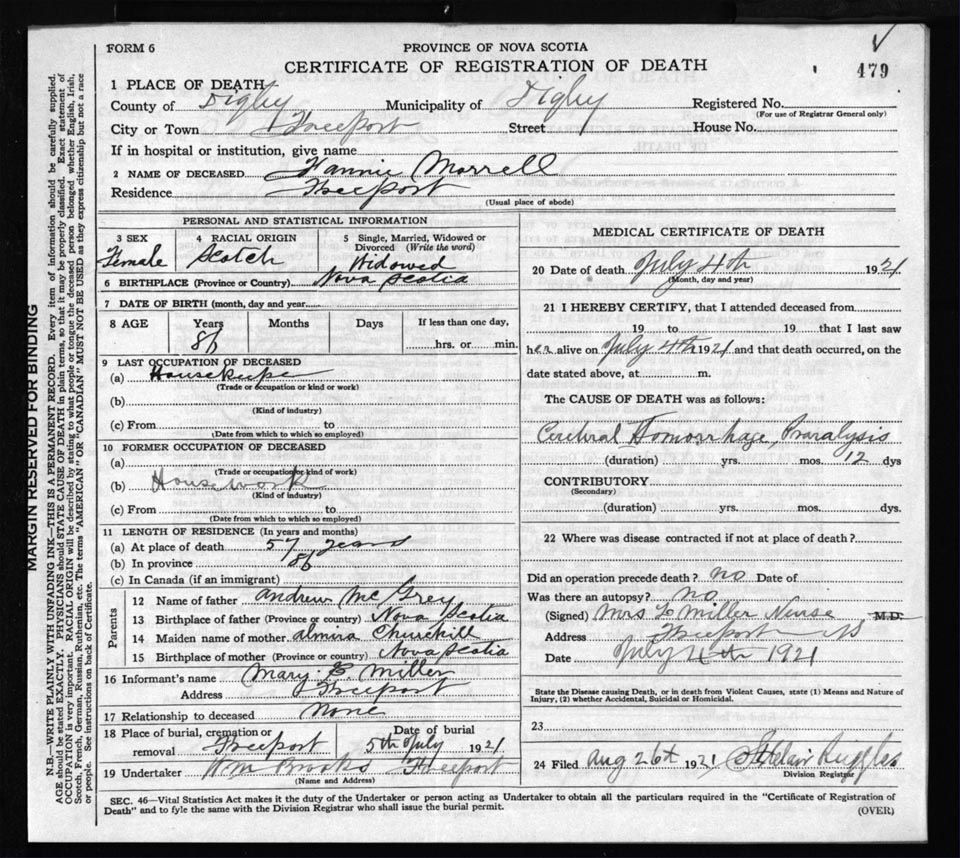 FORM 6
PROVINCE OF NOVA SCOTIA
CERTIFICATE OF REGISTRATION OF DEATH
479
1 PLACE OF DEATH
County of Digby Municipality of Digby Registered No.
(For use of Registrar General only)
City or Town Freeport Street House No.
If in hospital or institution, give name
2 NAME OF DECEASED Fannie Morrell
Residence Freeport
(Usual place of abode)
MARGIN RESERVED FOR BINDING
N.B.—WRITE PLAINLY WITH UNFADING INK—THIS IS A PERMANENT RECORD. Every item of information should be carefully supplied.
AGE should be stated EXACTLY. PHYSICIANS should STATE CAUSE OF DEATH in plain terms, so that it may be properly classified. Exact statement of
OCCUPATION is very important. RACIAL ORIGIN will be described by stating to what people or tongue the deceased person belonged whether English, Irish,
Scotch, French, German, Russian, Ruthenian, etc. The terms "AMERICAN" OR "CANADIAN" MUST NOT BE USED as they express citizenship but not a race
or people. See instructions on back of Certificate.
PERSONAL AND STATISTICAL INFORMATION
3 SEX
Female
4 RACIAL ORIGIN
Scotch
5 Single, Married, Widowed or
Divorced (Write the word)
Widowed
6 BIRTHPLACE (Province or Country) Nova Scotia
7 DATE OF BIRTH (month, day and year)
8 AGE Years Months Days If less than one day,
86 hrs. or min.
9 LAST OCCUPATION OF DECEASED
(a) Housekeeper
(Trade or occupation or kind or work)
(b)
(Kind of industry)
(c) From to
(Date from which to which so employed)
10 FORMER OCCUPATION OF DECEASED
(a)
(Trade or occupation or kind of work)
(b) Housework
(Kind of industry)
(c) From to
(Date from which to which so employed)
11 LENGTH OF RESIDENCE (In years and months)
(a) At place of death 57 years
(b) In province 86
(c) In Canada (if an immigrant)
Parents
12 Name of father Andrew McGrey
13 Birthplace of father (Province or country) Nova Scotia
14 Maiden name of mother Almira Churchill
15 Birthplace of mother (Province or country) Nova Scotia
16 Informant's name Mary E. Miller
Address Freeport
17 Relationship to deceased None
18 Place of burial, cremation or Date of burial
removal Freeport 5th July 1921
19 Undertaker Wm Brooks Freeport
(Name and Address)
MEDICAL CERTIFICATE OF DEATH
20 Date of death July 4th 1921
(Month, day and year)
21 I HEREBY CERTIFY, that I attended deceased from
19 to 19 that I last saw
her alive on July 4th 1921 and that death occurred, on the
date stated above, at m.
The CAUSE OF DEATH was as follows:
Cerebral Homorrhage Pararalysis
(duration) yrs. mos. 12 dys
CONTRIBUTORY
(Secondary)
(duration) yrs. mos. dys.
22 Where was disease contracted if not at place of death?
Did an operation precede death? no Date of
Was there an autopsy? no
(Signed) Mrs Miller Nurse M.D.
Address Freeport NS
Date July 4th 1921
State the Disease causing Death, or in death from Violent Causes, state (1) Means and Nature of
Injury, (2) whether Accidental, Suicidal or Homicidal.
23
24 Filed Aug 26th 1921
Division Registrar
SEC. 46—Vital Statistics Act makes it the duty of the Undertaker or person acting as Undertaker to obtain all the particulars required in the "Certificate of Registration of
Death" and to fyle the same with the Division Registrar who shall issue the burial permit.
(OVER)